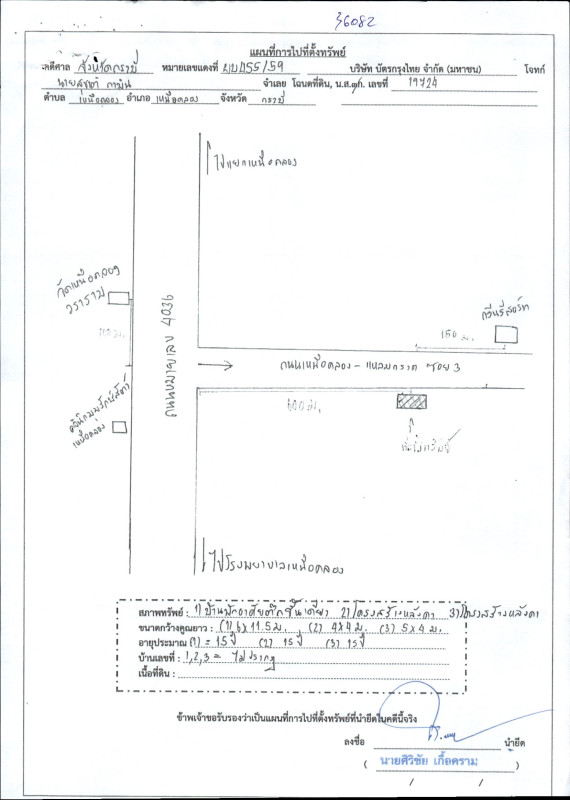 36082
แผนที่การไปที่ตั้งทรัพย์
คดีศาล จังหวัดกระบี่ หมายเลขแดงที่ ผบ.855/59 บริษัท บัตรกรุงไทย จำกัด (มหาชน) โจทก์
จำเลย โฉนดที่ดิน, น.ส.๓ก. เลขที่ 19724
ตำบล เหนือคลอง อำเภอ เหนือคลอง จังหวัด กระบี่
ไปแยกเหนือคลอง
วัดเหนือคลอง
วราราม
ถนนหมายเลข 4036
ถนนเหนือคลอง - แหลมกรวด ซอย 3
150 ม.
600 ม.
ที่ตั้งทรัพย์
เหนือคลอง
ไปโรงพยาบาลเหนือคลอง
สภาพทรัพย์ : 1) บ้านพักอาศัยตึกชั้นเดียว 2) โครงสร้างหลังคา 3) โครงสร้างหลังคา
ขนาดกว้างคูณยาว : (1) 6 x 11.5 ม. (2) 4 x 4 ม. (3) 5 x 4 ม.
อายุประมาณ (1) = 15 ปี (2) 15 ปี (3) 15 ปี
บ้านเลขที่ : 1,2,3 = ไม่ปรากฏ
เนื้อที่ดิน :
ข้าพเจ้าขอรับรองว่าเป็นแผนที่การไปที่ตั้งทรัพย์ที่นำยึดในคดีนี้จริง
ลงชื่อ นำยึด
( นายศิวิชัย เกื้อคราม )
/ /